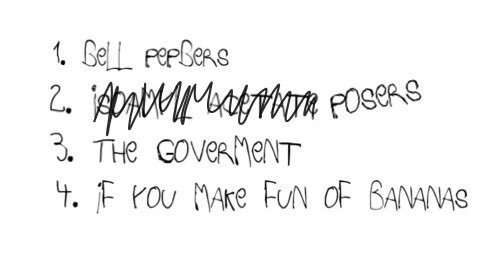 1. BeLL PePBeRS
2. POSeRS
3. THe GOVeRMeNT
4. iF YOU MAKe FUN OF BANANAS